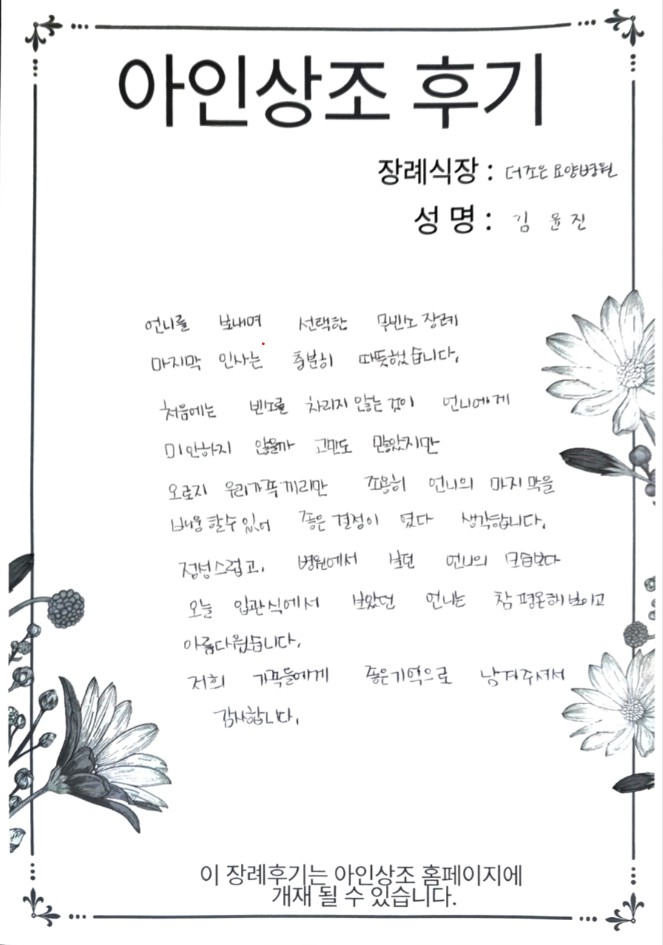 아인상조 후기
장례식장 : 더조은요양병원
성 명 : 김 윤 진
언니를 보내며 선택한 무빈소 장례
마지막 인사는 충분히 따뜻했습니다.
처음에는 빈소를 차리지 않는 것이 언니에게
미안하지 않을까 고민도 많았지만
오로지 우리가족끼리만 조용히 언니의 마지막을
배웅 할수 있어 좋은 결정이 였다 생각합니다.
정성스럽고, 병원에서 보던 언니의 모습보다
오늘 입관식에서 보았던 언니는 참 평온해보이고
아름다웠습니다.
저희 가족들에게 좋은기억으로 남겨주셔서
감사합니다.
이 장례후기는 아인상조 홈페이지에
개재 될 수 있습니다.